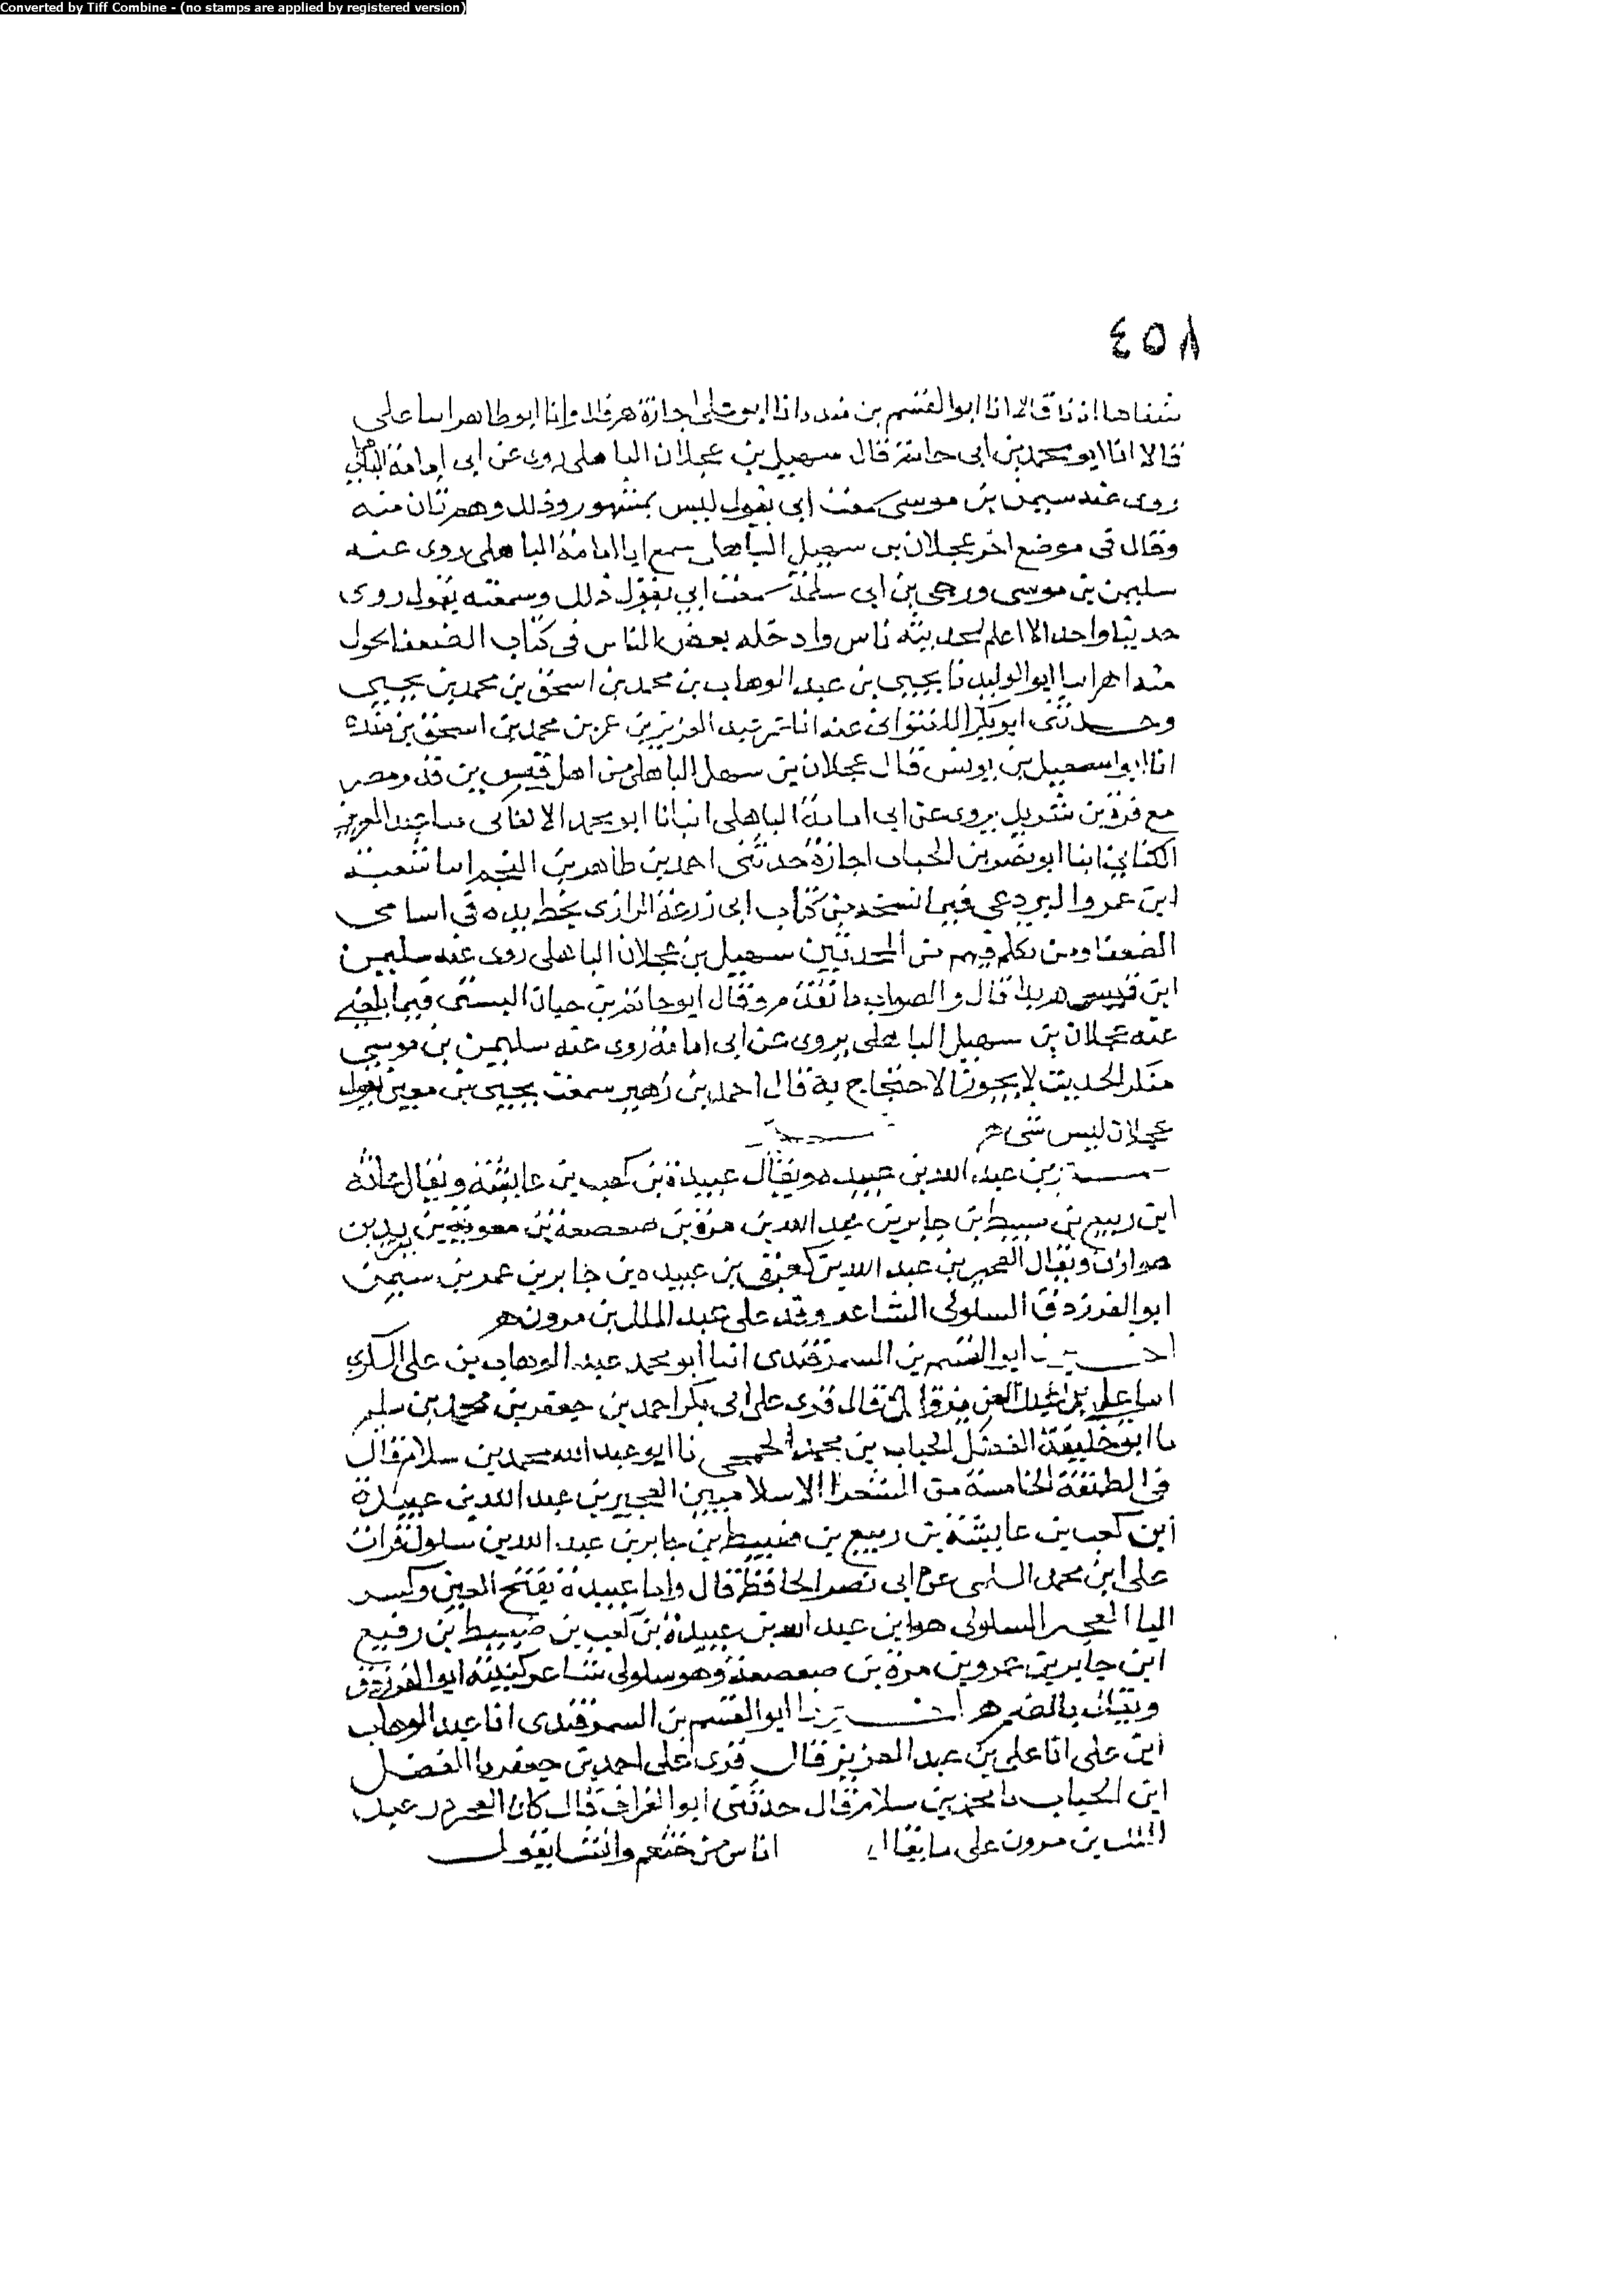 Converted by Tiff Combine - (no stamps are applied by registered version)
٤٥٨
شفاها اذنا قالا انا ابو القسم بن منده انا ابو على اجازة ه قال وانا ابو طاهر انا على
قالا انا ابو محمد بن ابى حاتم قال سهيل بن عجلان الباهلى روى عن ابى امامة الباهلى
روى عنه سليمن بن موسى سمعت ابى يقول ليس بمشهور وذلك وهم ثان منه
وقال فى موضع اخر عجلان بن سهيل الباهلى سمع ابا امامة الباهلى روى عنه
سليمن بن موسى ورجى بن ابى سلمة سمعت ابى يقول ذلك وسمعته يقول روى
حديثا واحدا لا اعلم لحديثه ناس وادخله بعض الناس فى كتاب الضعفا يحول
منه ابو الوليد نا يحيى بن عبد الوهاب بن محمد بن اسحق بن محمد بن يحيى
وحدثنى ابو بكر اللفتوانى عنه انا عمر بن محمد بن اسحق بن منده
انا ابو اسمعيل بن يونس قال عجلان بن سهل الباهلى من اهل قيس بن قدم مصر
مع قرة بن شريك يروى عن ابى امامة الباهلى انبانا ابو محمد الاكفانى نا عبد العزيز
الكتانى انا ابو نصر بن الحباب اجازة حدثنى احمد بن طاهر بن النجم انا سعيد
ابن عمرو البردعى فيما نسخه من كتاب ابى زرعة الرازى بخط يده فى اسامى
الضعفا ومن تكلم فيهم من المحدثين سهيل بن عجلان الباهلى روى عنه سليمن
ابن قال والصواب ما تقدم وقال ابو حاتم بن حبان البستى فيما بلغنى
عنه عجلان بن سهيل الباهلى يروى عن ابى امامة روى عنه سليمن بن موسى
منكر الحديث لا يجوز الاحتجاج به قال احمد بن زهير سمعت يحيى بن معين يقول
عجلان ليس شى ه
بن عبد الله بن عبيده ويقال عبيدة بن كعب بن عايشة ويقال عائشة
ابن ربيع بن سبيط بن جابر بن عبد الله بن مرة بن صعصعة بن معوية بن بكر بن
هوازن ويقال العجير بن عبد الله بن كعب بن عبيده بن جابر بن عمر بن
ابو الفرزدق السلولى الشاعر وفد على عبد الملك بن مرون ه
اخبرنا ابو القسم بن السمرقندى انبا ابو محمد عبد الوهاب بن على السكرى
انا على بن عبد العزيز قال قرى على ابى بكر احمد بن جعفر بن محمد بن سلم
نا ابو خليفة الفضل الحباب بن محمد الجمحى نا ابو عبد الله محمد بن سلام قال
فى الطبقة الخامسة من الشعرا الاسلاميين العجير بن عبد الله بن عبيدة
ابن كعب بن عايشة بن ربيع بن ضبيط بن جابر بن عبد الله بن سلول قرات
على ابن محمد السلمى عن ابى نصر الحافظ قال واما عبيدة بفتح العين وكسر
اليا العجير السلولى هو ابن عبد الله بن عبيدة بن كعب بن ضبيط بن رفيع
ابن جابر بن عمرو بن مرة بن صعصعة وهو سلولى شاعر كنيته ابو الفرزدق
ويقال بالضم ه اخبرنا ابو القسم بن السمرقندى انا عبد الوهاب
ابن على انا على بن عبد العزيز قال قرى على احمد بن جعفر نا الفضل
ابن الحباب نا محمد بن سلام قال حدثنى ابو الغراف قال كان العجير عبد
الملك بن مرون على ما يقال اناس من خثعم وانشا يقول